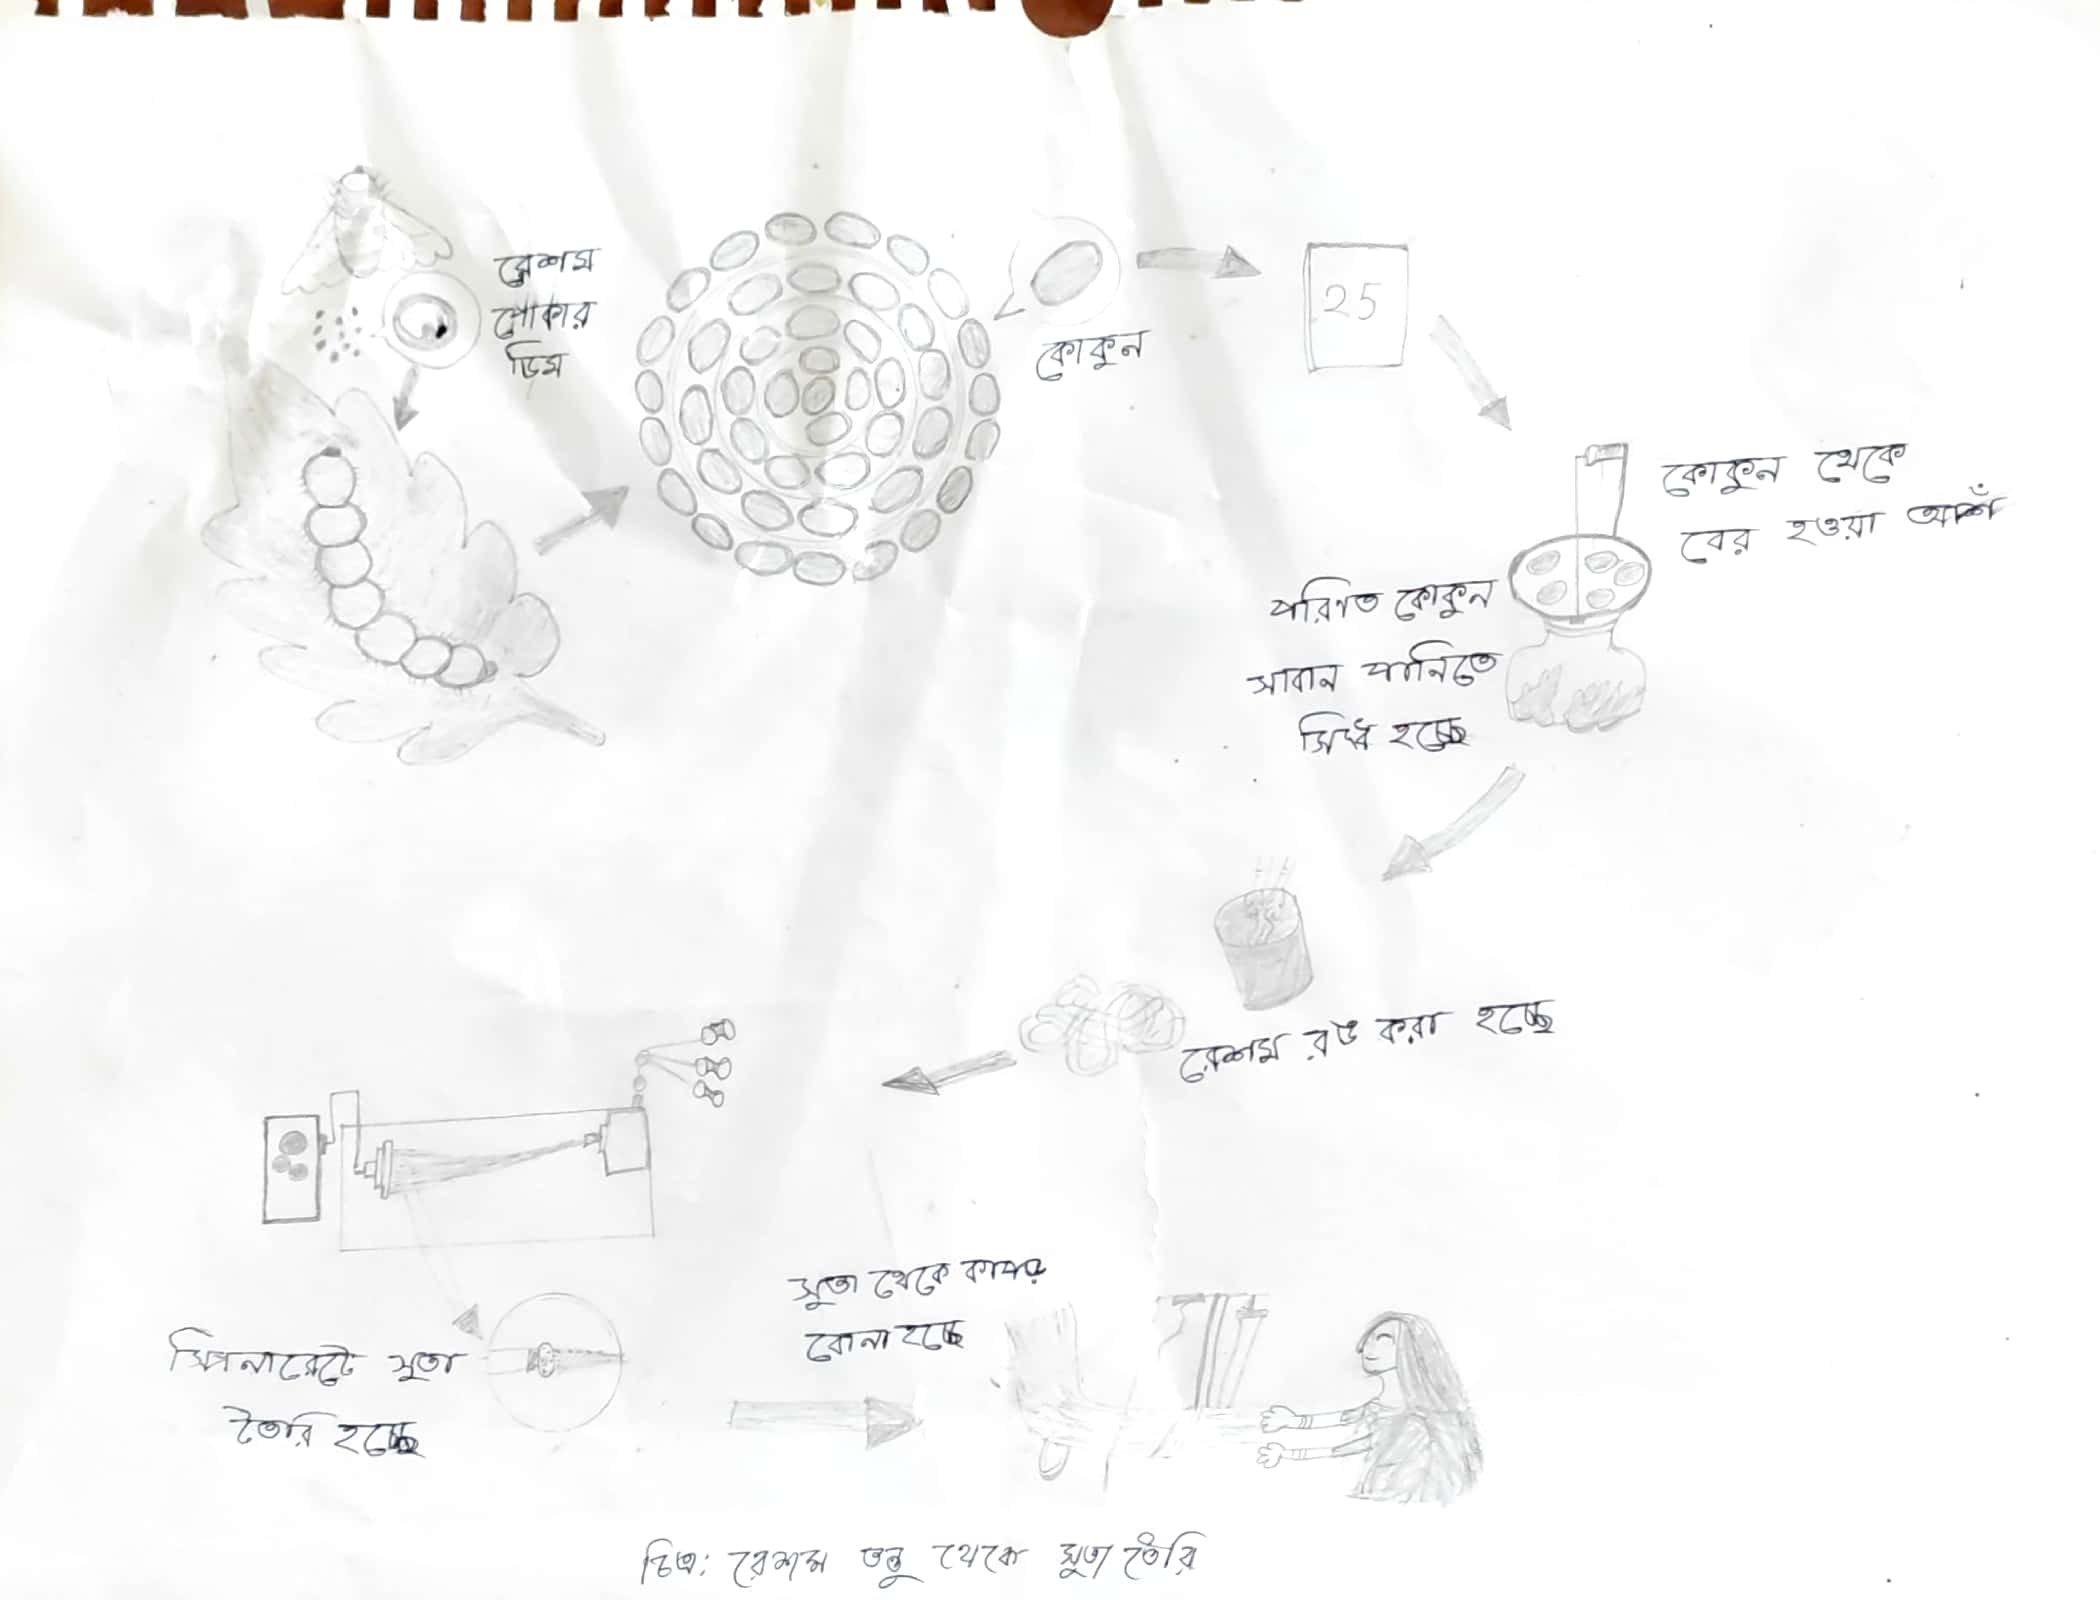 রেশম
পোকার
ডিম
কোকুন
25
কোকুন থেকে
বের হওয়া আশঁ
পরিণত কোকুন
সাবান পানিতে
সিদ্ধ হচ্ছে
রেশম রঙ করা হচ্ছে
স্পিনারেটে সুতা
তৈরি হচ্ছে
সুতা থেকে কাপর
বোনা হচ্ছে
চিত্র: রেশম তন্তু থেকে সুতা তৈরি